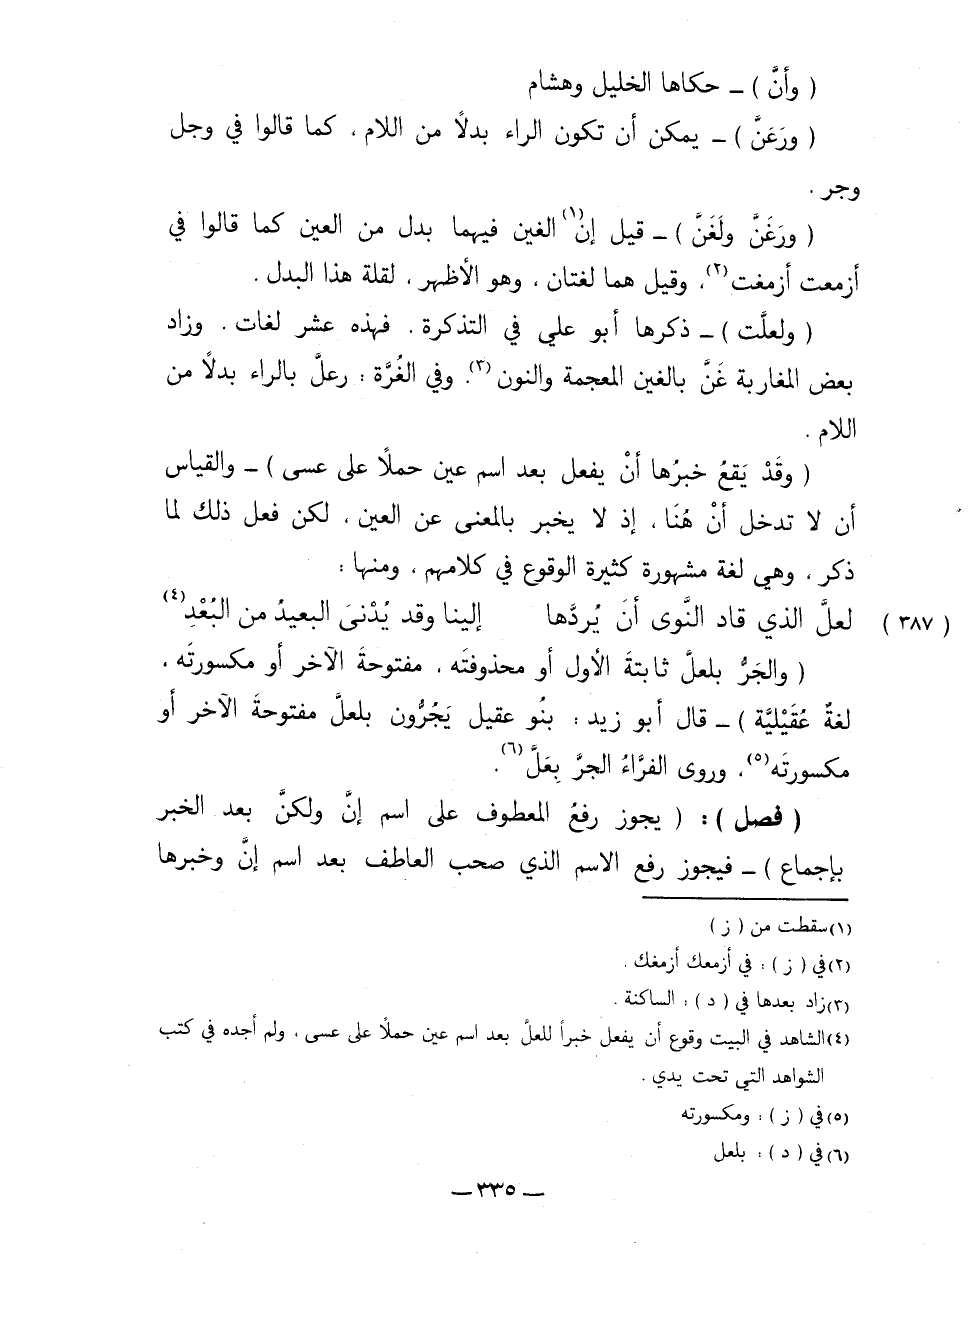 ( وأنَّ ) ــ حكاها الخليل وهشام
( ورَعَنَّ ) ــ يمكن أن تكون الراء بدلاً من اللام ، كما قالوا في وجل
وجر .
( ورَغَنَّ ولَغَنَّ ) ــ قيل إن(١) الغين فيهما بدل من العين كما قالوا في
أزمعت أزمغت(٢)، وقيل هما لغتان ، وهو الأظهر ، لقلة هذا البدل .
( ولعلَّت ) ــ ذكرها أبو علي في التذكرة . فهذه عشر لغات . وزاد
بعض المغاربة غَنَّ بالغين المعجمة والنون(٣). وفي الغُرَّة : رعلَّ بالراء بدلاً من
اللام .
( وقَدْ يَقعُ خبرُها أنْ يفعل بعد اسم عين حملًا على عسى ) ــ والقياس
أن لا تدخل أنْ هُنَا ، إذ لا يخبر بالمعنى عن العين ، لكن فعل ذلك لما
ذكر ، وهي لغة مشهورة كثيرة الوقوع في كلامهم ، ومنها :
( ٣٨٧ ) لعلَّ الذي قاد النَّوى أنَ يُردَّها إلينا وقد يُدْنىَ البعيدُ من البُعْدِ(٤)
( والجَرُّ بلعلَّ ثابتةَ الأول أو محذوفتَه ، مفتوحةَ الآخر أو مكسورتَه ،
لغةٌ عُقَيْليَّة ) ــ قال أبو زيد : بنُو عقيل يَجُرُّون بلعلَّ مفتوحةَ الآخر أو
مكسورتَه(٥)، وروى الفرَّاءُ الجرَّ بِعَلَّ(٦).
( فصل ) : ( يجوز رفعُ المعطوف على اسم إنَّ ولكنَّ بعد الخبر
بإجماع ) ــ فيجوز رفع الاسم الذي صحب العاطف بعد اسم إنَّ وخبرها
(١) سقطت من ( ز )
(٢) في ( ز ) : في أزمعك أزمغك .
(٣) زاد بعدها في ( د ) : الساكنة .
(٤) الشاهد في البيت وقوع أن يفعل خبراً للعلّ بعد اسم عين حملًا على عسى ، ولم أجده في كتب
الشواهد التي تحت يدي .
(٥) في ( ز ) : ومكسورته
(٦) في ( د ) : بلعل
ــ ٣٣٥ ــ